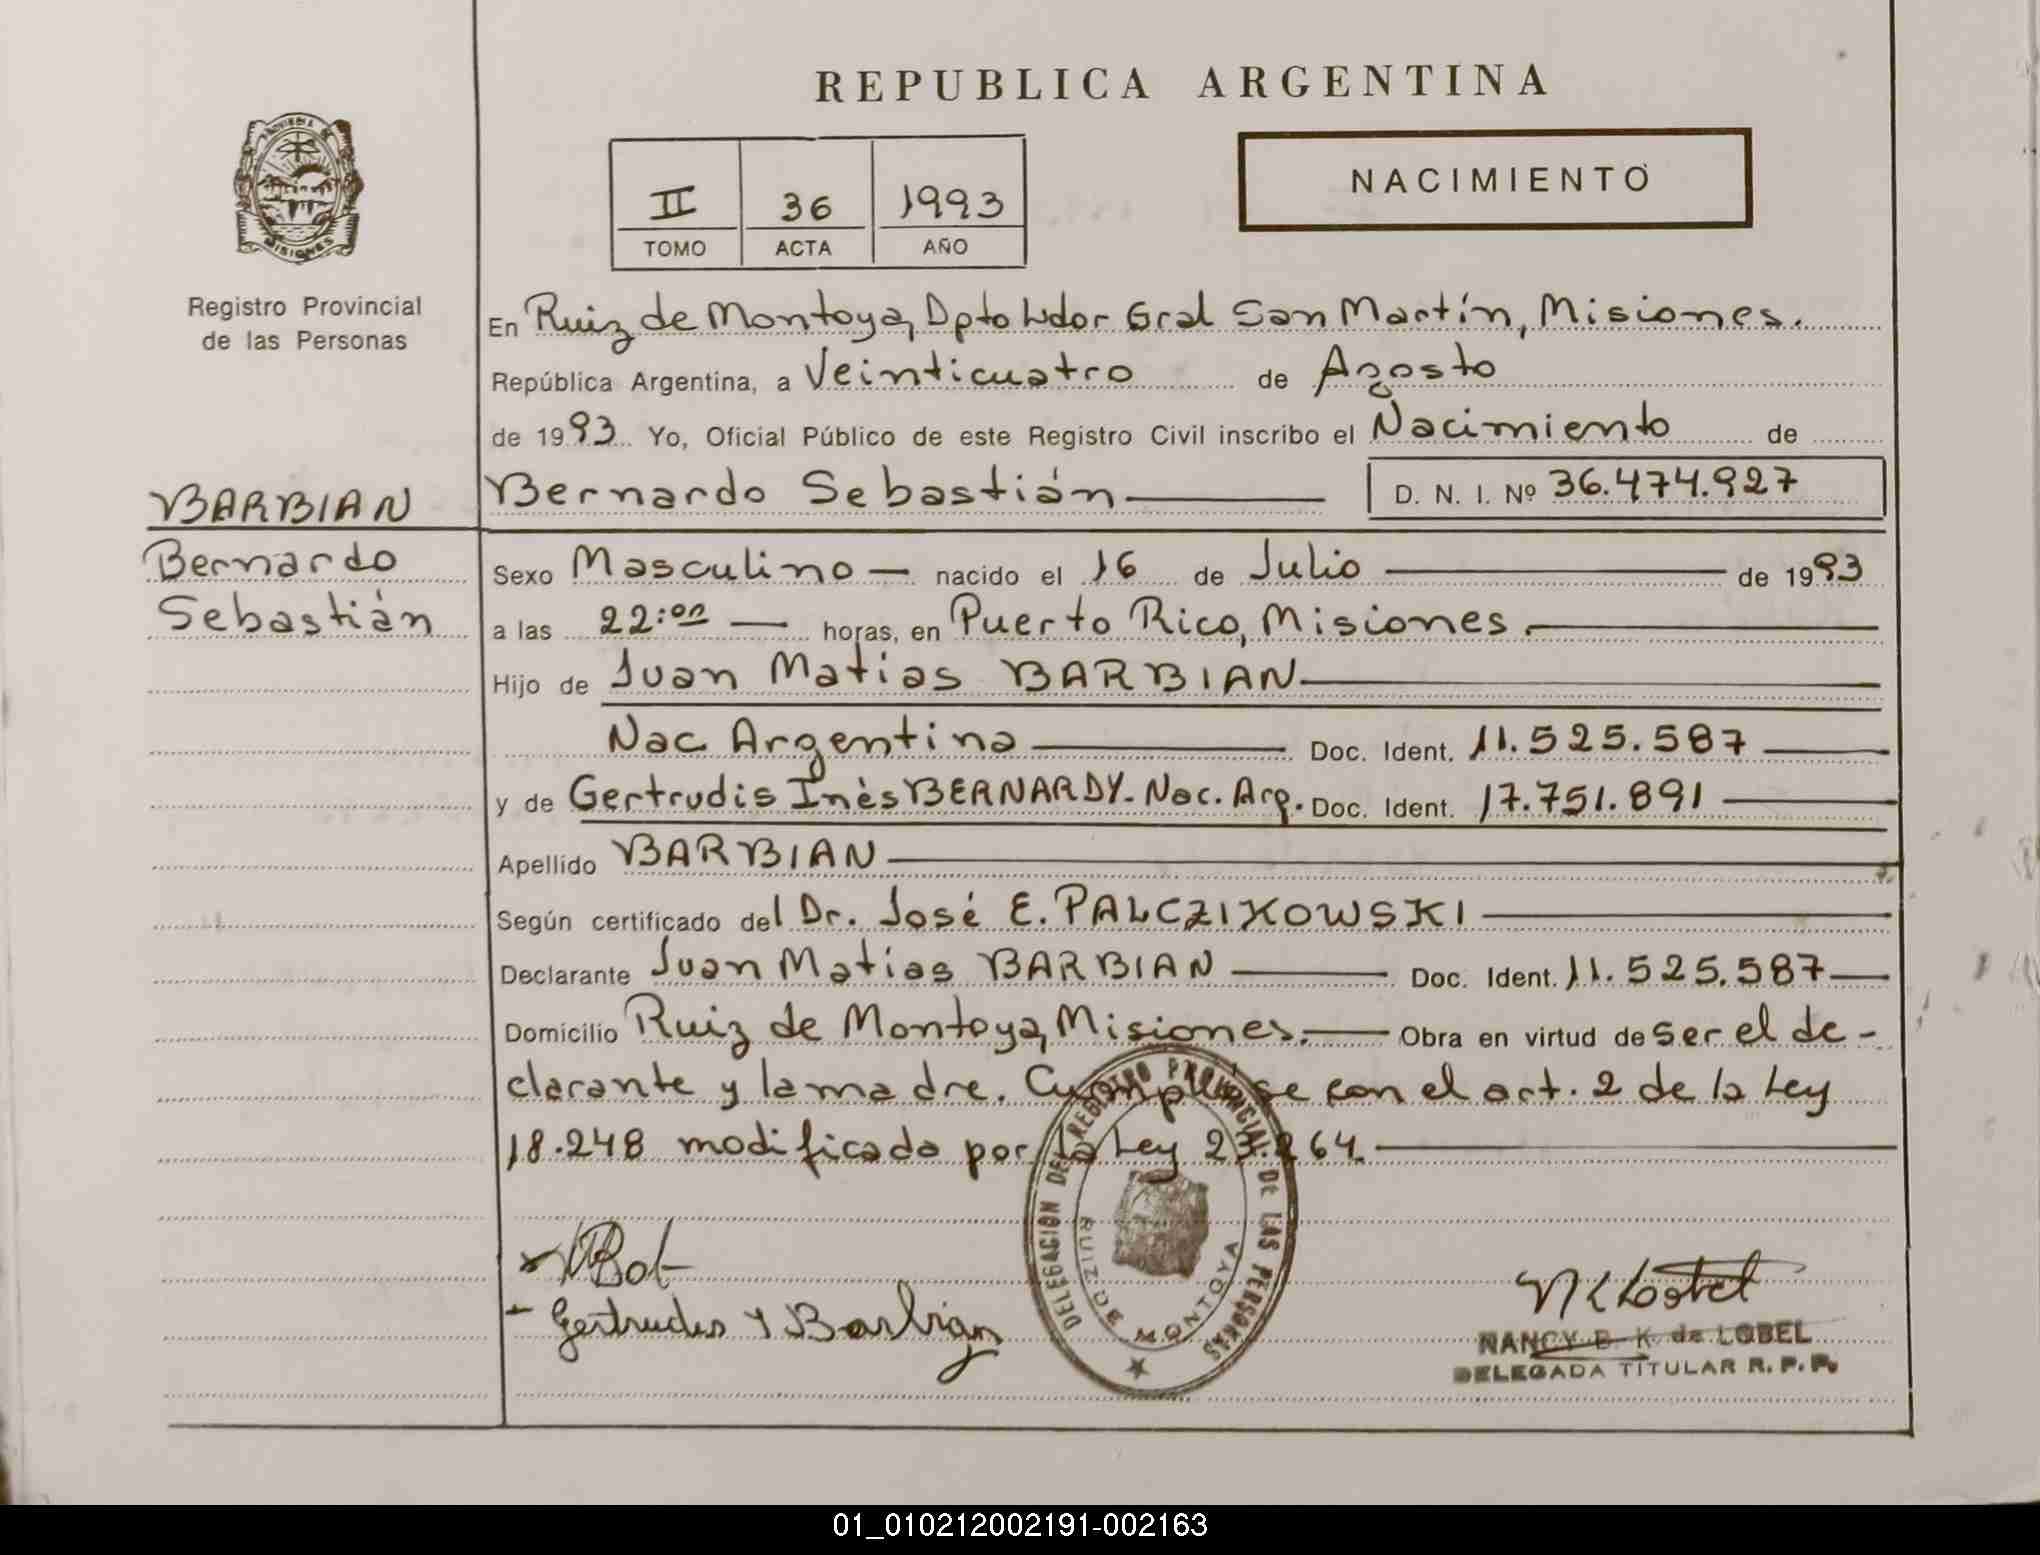 REPUBLICA ARGENTINA
PROVINCIA DE MISIONES
Registro Provincial
de las Personas
II 36 1993
TOMO ACTA AÑO
NACIMIENTO
En Ruiz de Montoya, Dpto Ldor Gral San Martín, Misiones.
República Argentina, a Veinticuatro de Agosto
de 1993 Yo, Oficial Público de este Registro Civil inscribo el Nacimiento de
Bernardo Sebastián D. N. I. Nº 36.474.927
BARBIAN
Bernardo
Sebastián
Sexo Masculino nacido el 16 de Julio de 1993
a las 22:00 horas, en Puerto Rico, Misiones.
Hijo de Juan Matias BARBIAN
Nac Argentina Doc. Ident. 11.525.587
y de Gertrudis Inès BERNARDY - Nac. Arg. Doc. Ident. 17.751.891
Apellido BARBIAN
Según certificado del Dr. José E. PALCZIKOWSKI
Declarante Juan Matias BARBIAN Doc. Ident. 11.525.587
Domicilio Ruiz de Montoya, Misiones. Obra en virtud de ser el de-
clarante y la madre. Cumpliése con el art. 2 de la Ley
18.248 modificado por la Ley 23.264.
DELEGACION DEL REGISTRO PROVINCIAL DE LAS PERSONAS
RUIZ DE MONTOYA
Gertrudis Y Barbian
NANCY B. K. de LOBEL
DELEGADA TITULAR R. P. P.
01_010212002191-002163